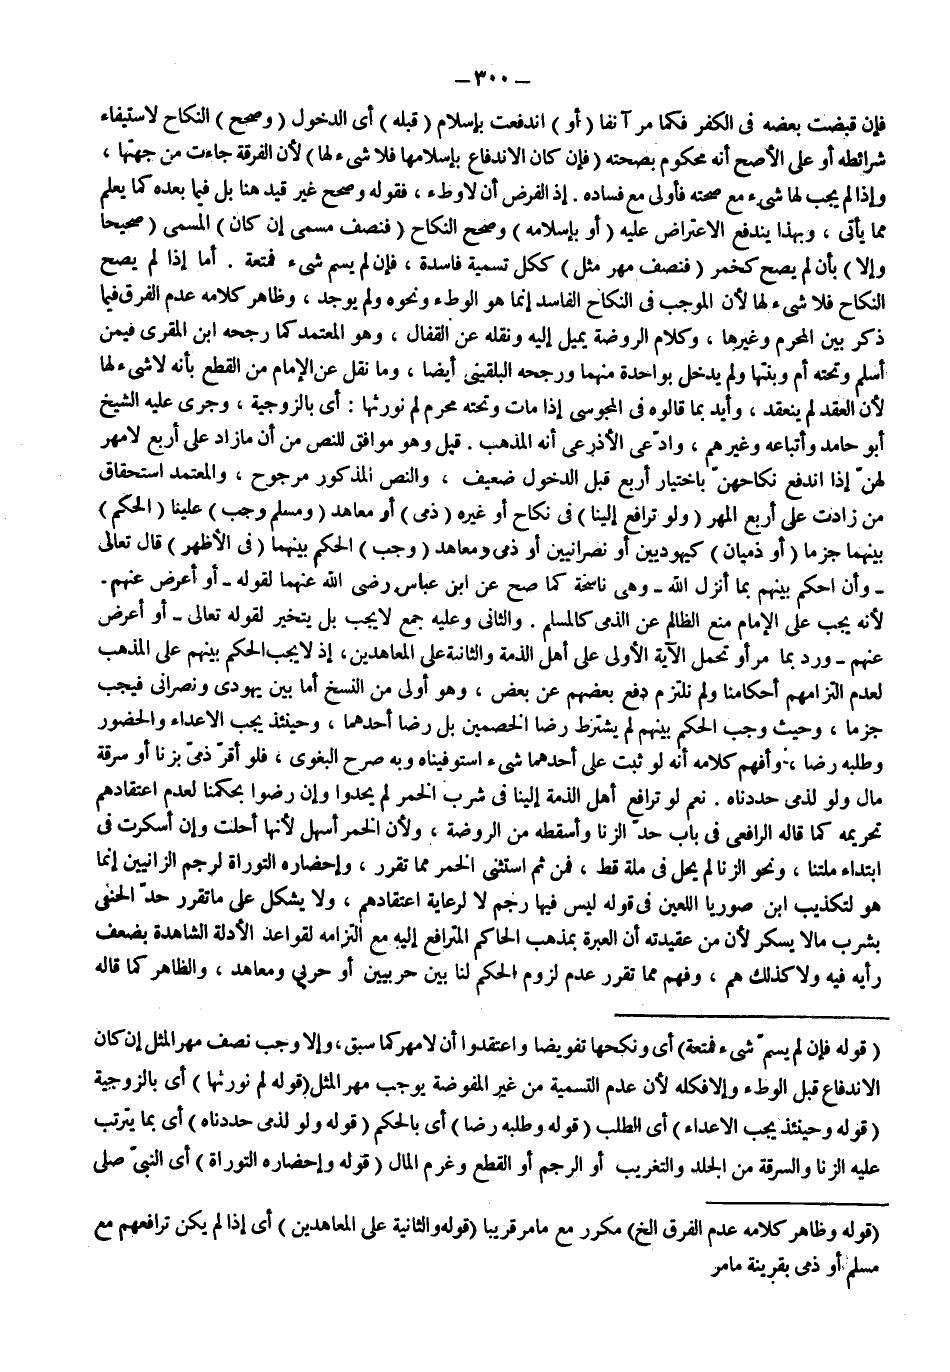 – ٣٠٠ –
فإن قبضت بعضه فى الكفر فكما مر آنفا ( أو ) اندفعت بإسلام ( قبله ) أى الدخول ( وصحح ) النكاح لاستيفاء
شرائطه أو على الأصح أنه محكوم بصحته ( فإن كان الاندفاع بإسلامها فلا شىء لها ) لأن الفرقة جاءت من جهتها ،
وإذا لم يجب لها شىء مع صحته فأولى مع فساده . إذ الفرض أن لا وطء ، فقوله وصحح غير قيد هنا بل فيما بعده كما يعلم
مما يأتى ، وبهذا يندفع الاعتراض عليه ( أو بإسلامه ) وصحح النكاح ( فنصف مسمى إن كان ) المسمى ( صحيحا
وإلا ) بأن لم يصح كخمر ( فنصف مهر مثل ) ككل تسمية فاسدة ، فإن لم يسم شىء فمتعة . أما إذا لم يصح
النكاح فلا شىء لها لأن الموجب فى النكاح الفاسد إنما هو الوطء ونحوه ولم يوجد ، وظاهر كلامه عدم الفرق فيما
ذكر بين المحرم وغيرها ، وكلام الروضة يميل إليه ونقله عن القفال ، وهو المعتمد كما رجحه ابن المقرى فيمن
أسلم وتحته أم وبنتها ولم يدخل بواحدة منهما ورجحه البلقينى أيضا ، وما نقل عن الإمام من القطع بأنه لا شىء لها
لأن العقد لم ينعقد ، وأيد بما قالوه فى المجوسى إذا مات وتحته محرم لم نورثها : أى بالزوجية ، وجرى عليه الشيخ
أبو حامد وأتباعه وغيرهم ، وادّعى الأذرعى أنه المذهب . قيل وهو موافق للنص من أن مازاد على أربع لامهر
لهنّ إذا اندفع نكاحهنّ باختيار أربع قبل الدخول ضعيف ، والنص المذكور مرجوح ، والمعتمد استحقاق
من زادت على أربع المهر ( ولو ترافع إلينا ) فى نكاح أو غيره ( ذمى ) أو معاهد ( ومسلم وجب ) علينا ( الحكم )
بينهما جزما ( أو ذميان ) كيهوديين أو نصرانيين أو ذمى ومعاهد ( وجب ) الحكم بينهما ( فى الأظهر ) قال تعالى
ـ وأن احكم بينهم بما أنزل الله ـ وهى ناسخة كما صح عن ابن عباس رضى الله عنهما لقوله ـ أو أعرض عنهم ـ
لأنه يجب على الإمام منع الظالم عن الذمى كالمسلم . والثانى وعليه جمع لايجب بل يتخير لقوله تعالى ـ أو أعرض
عنهم ـ ورد بما مر أو تحمل الآية الأولى على أهل الذمة والثانية على المعاهدين ، إذ لايجب الحكم بينهم على المذهب
لعدم التزامهم أحكامنا ولم نلتزم دفع بعضهم عن بعض ، وهو أولى من النسخ أما بين يهودى ونصرانى فيجب
جزما ، وحيث وجب الحكم بينهم لم يشترط رضا الخصمين بل رضا أحدهما ، وحينئذ يجب الاعداء والحضور
وطلبه رضا ، وأفهم كلامه أنه لو ثبت على أحدهما شىء استوفيناه وبه صرح البغوى ، فلو أقرّ ذمىّ بزنا أو سرقة
مال ولو لذمى حددناه . نعم لو ترافع أهل الذمة إلينا فى شرب الخمر لم يحدوا وإن رضوا بحكمنا لعدم اعتقادهم
تحريمه كما قاله الرافعى فى باب حدّ الزنا وأسقطه من الروضة ، ولأن الخمر أسهل لأنها أحلت وإن أسكرت فى
ابتداء ملتنا ، ونحو الزنا لم يحل فى ملة قط ، فمن ثم استثنى الخمر مما تقرر ، وإحضاره التوراة لرجم الزانيين إنما
هو لتكذيب ابن صوريا اللعين فى قوله ليس فيها رجم لا لرعاية اعتقادهم ، ولا يشكل على ماتقرر حدّ الحنفى
بشرب مالا يسكر لأن من عقيدته أن العبرة بمذهب الحاكم المترافع إليه مع التزامه لقواعد الأدلة الشاهدة بضعف
رأيه فيه ولا كذلك هم ، وفهم مما تقرر عدم لزوم الحكم لنا بين حربيين أو حربي ومعاهد ، والظاهر كما قاله
( قوله فإن لم يسمّ شىء فمتعة ) أى ونكحها تفويضا واعتقدوا أن لامهر كما سبق ، وإلا وجب نصف مهر المثل إن كان
الاندفاع قبل الوطء وإلا فكله لأن عدم التسمية من غير المفوضة يوجب مهر المثل ( قوله لم نورثها ) أى بالزوجية
( قوله وحينئذ يجب الاعداء ) أى الطلب ( قوله وطلبه رضا ) أى بالحكم ( قوله ولو لذمى حددناه ) أى بما يترتب
عليه الزنا والسرقة من الجلد والتغريب أو الرجم أو القطع وغرم المال ( قوله وإحضاره التوراة ) أى النبىّ صلى
( قوله وظاهر كلامه عدم الفرق الخ ) مكرر مع مامر قريبا ( قوله والثانية على المعاهدين ) أى إذا لم يكن ترافعهم مع
مسلم أو ذمى بقرينة مامر